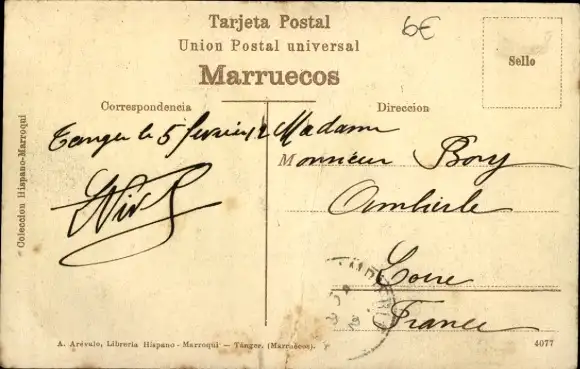 Tarjeta Postal
6€
Union Postal universal
Marruecos
Sello
Correspondencia
Direccion
Tanger le 5 fevrier 12
Madame
Monsieur Bory
Ambierle
Loire
France
Coleccion Hispano-Marroqui
A. Arévalo, Librería Hispano-Marroqui — Tánger. (Marruecos).
4077